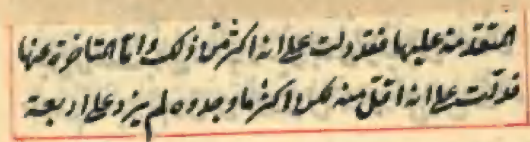 المتقدمة عليها فقد دلت على انه اكثر من ذلك واما المتاخرة عنها
فدلت على انه اقل منه لكن اكثر ما وجدوه لم يزد على اربعة